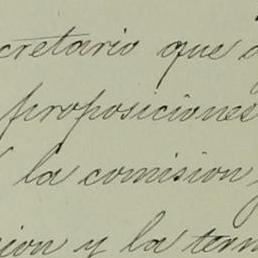 cretario que
proposiciones
la comision
sion y la term